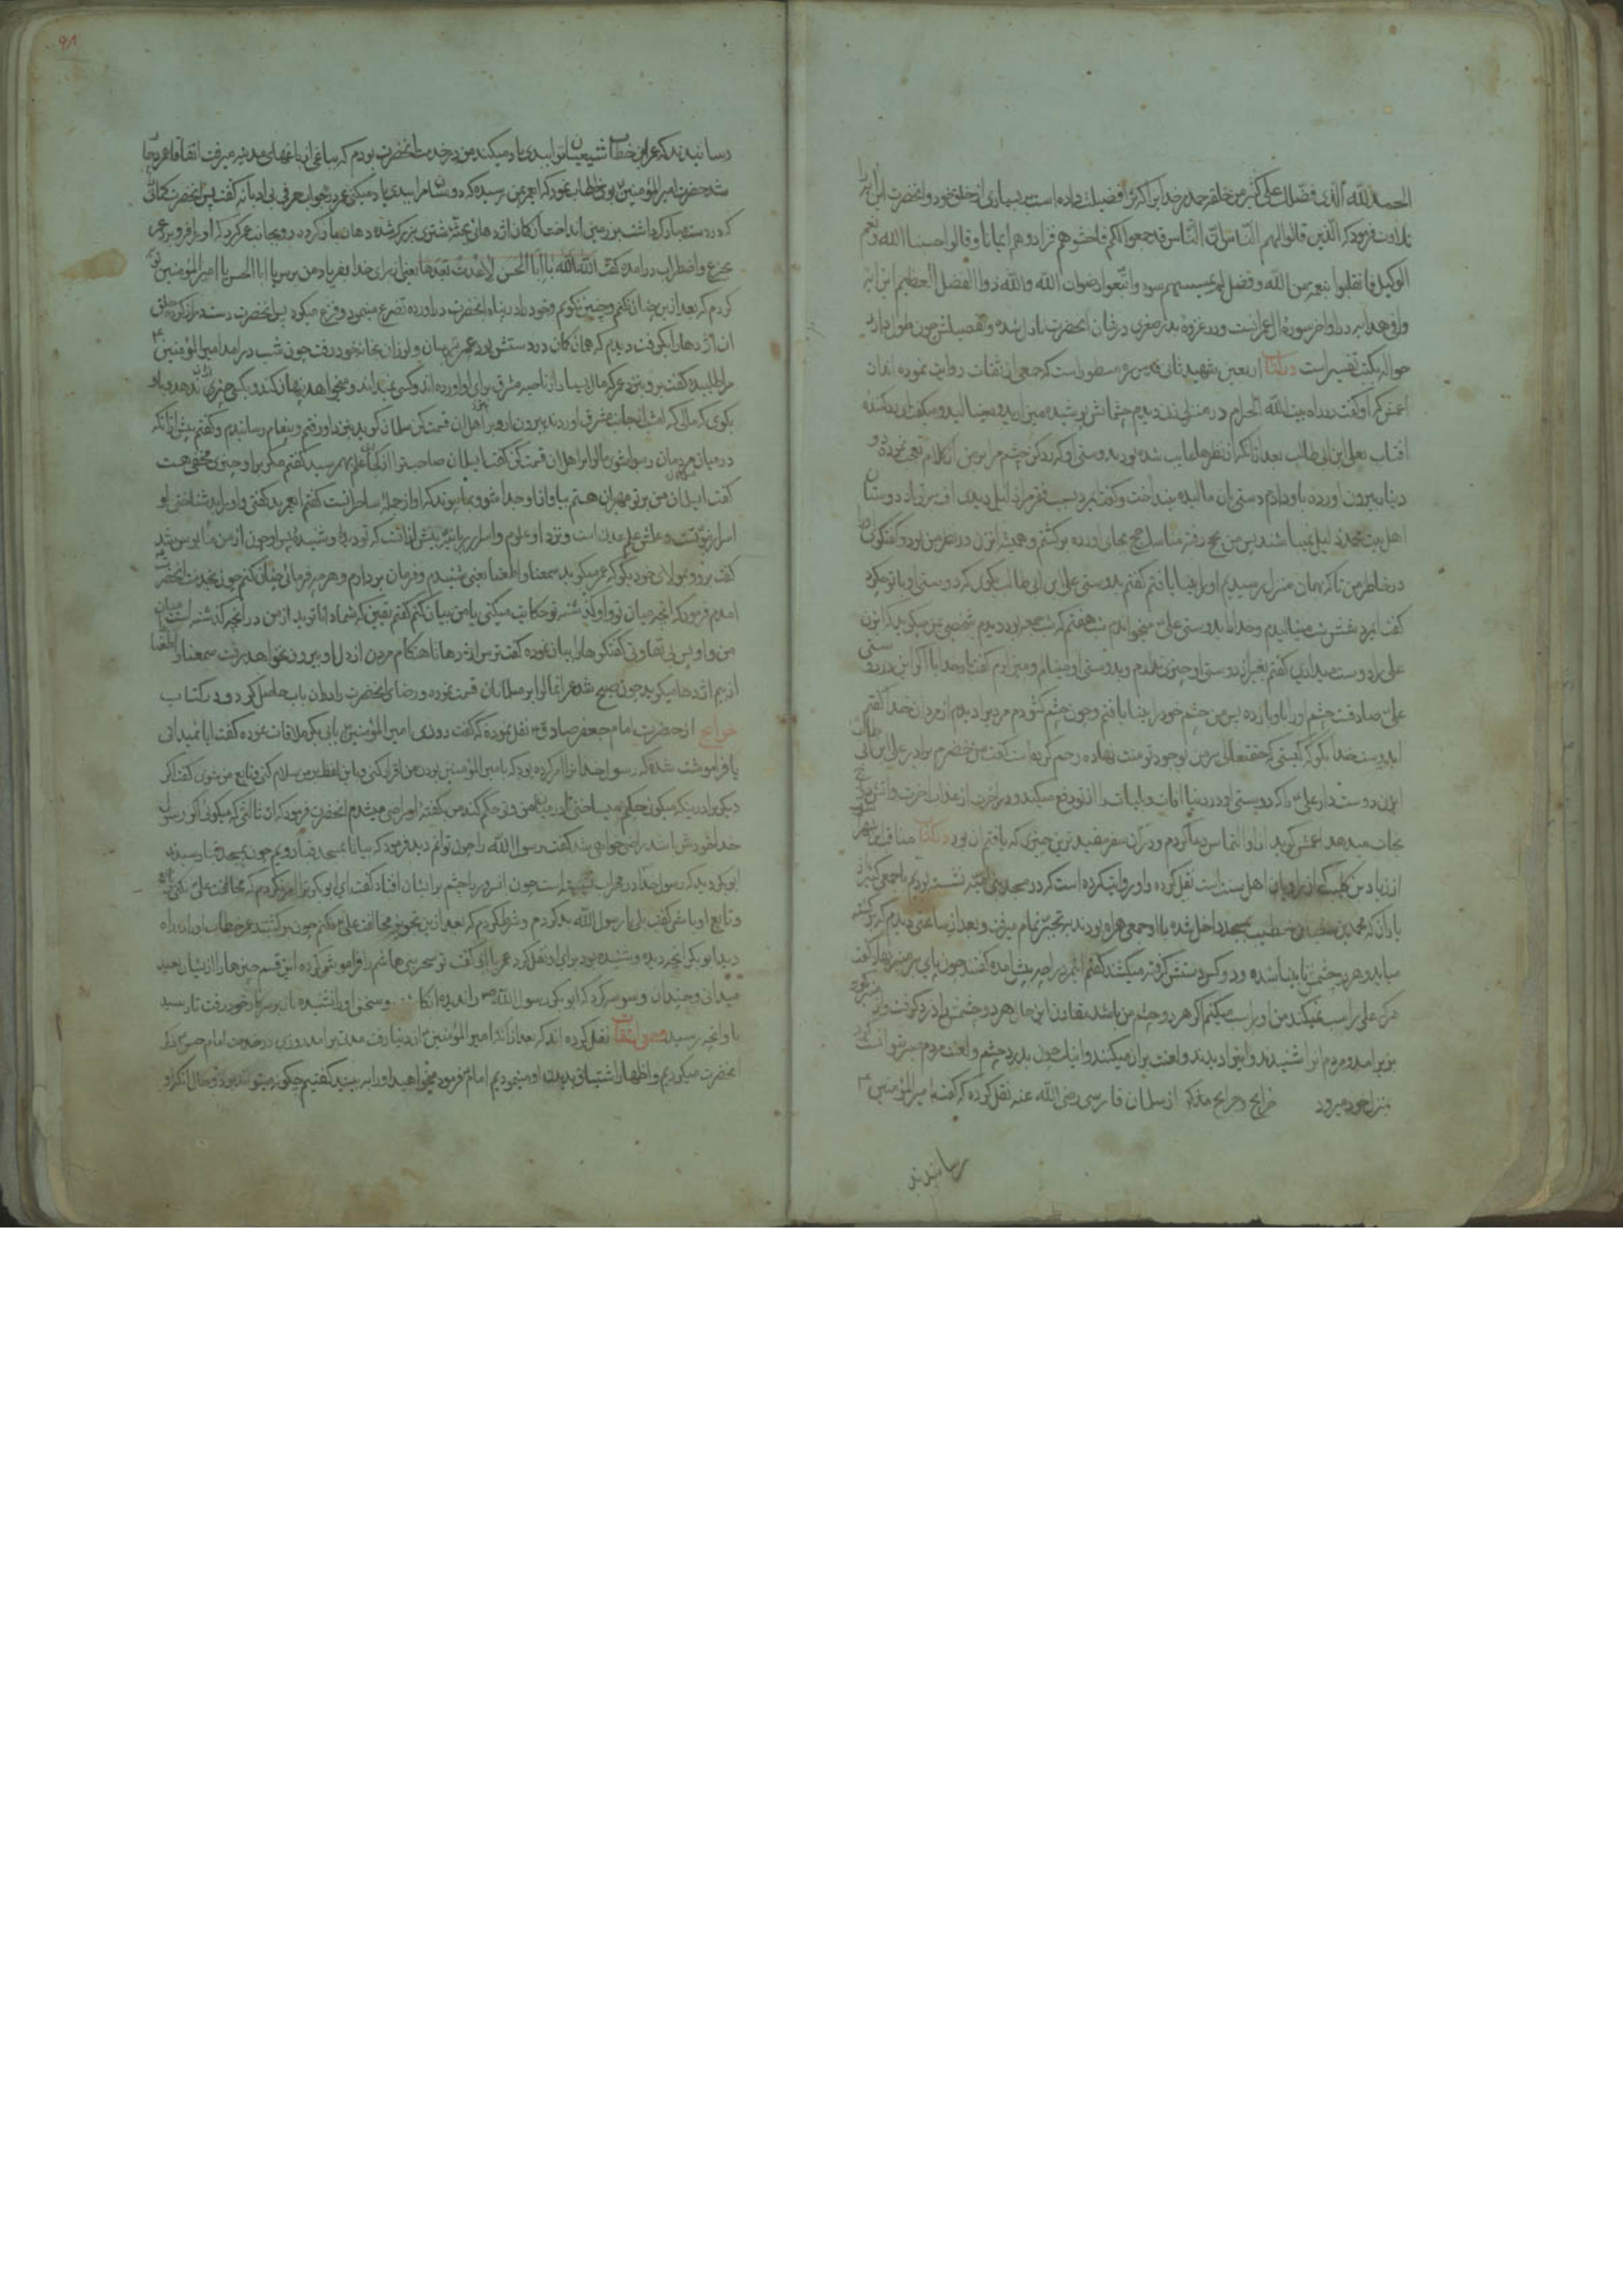 الحمد لله الذی فضلک علی کثیر من خلقه حمد مر خدایرا که ترا فضیلت داده است بر بسیاری از خلق خود و انحضرت این آیه را
تلاوت فرمود که الذین قال لهم الناس ان الناس قد جمعوا لکم فاخشوهم فزادهم ایمانا و قالوا حسبنا الله و نعم
الوکیل فانقلبوا بنعمة من الله و فضل لم یمسسهم سوء و اتبعوا رضوان الله والله ذو الفضل العظیم این آیه
در اواخر سورۀ آل عمرانست و در غزوۀ بدر صغری در شان انحضرت نازل شده و تفصیلش چون طول دارد
حواله بکتب تفسیر است در کتاب اربعین شهید ثانی قدس سره مسطور است که جمعی از ثقات روایت نموده اند از
اعمش که او گفت در راه بیت الله الحرام در منزلی زنی دیدم چشمانش پوشیده
افتاب بعلی ابن ابی طالب بعد از انکه از نظرها غایب شده بود بدوستی او که رد کن چشم مرا بر من از کلام تعجب نموده دو
دینار بیرون اورده باو دادم دستی بان مالیده بینداخت و گفت ایمرد بسبب فقر مرا ذلیل دیدی اف بر تو باد دوستان
اهل بیت محمد ذلیل نمیباشند پس من بحج رفته مناسک حج بجای اورده برگشتم و همیشه انزن در نظر من بود و گفتگوی او
در خاطر من تا که بهمان منزل رسیدیم او را بینا یافتم گفتم بدوستی علی ابن ابی طالب بگوی که دوستی او با تو چکرد
گفت ایمرد شش شب مینالیدم و خدا را بدوستی علی میخواندم شب هفتم که شب جمعه بود دیدم شخصی بمن میگوید که ایزن
علی را دوست میداری گفتم بغیر از دوستی او چیزی ندارم
علی صادقست چشم او را باو باز ده پس من چشم خود را بینا یافتم و چون چشم گشودم مردیرا دیدم
بگو که کیستی که حقتعالی بر من بوجود تو منت نهاده رحم کرده است گفت من خضرم برادر علی ابن ابی طالب
ایزن دوست دار علی را که دوستی او در دنیا افات و بلیات را از تو دفع میکند و در اخرت از عذاب اخرت و اتش
نجات میدهد اعمش گوید از او التماس دعا کردم و در ان سفر مفیدترین چیزی که یافتم ان بود در کتاب مناقب ابن شهر
از زیاد بن کلیب که از راویان اهل سنت است نقل کرده و او روایت کرده است که در مسجد نشسته بودیم با جمعی
یاران که محمد بن صفوان خطیب بمسجد داخل شده با او جمعی همراه بودند بتجبر تمام میرفت و بعد از ساعتی دیدم که برگشته
میاید و هر دو چشمش نابینا شده و دو کس دستش گرفته میکشند
هر که علی را سب نمیکند من او را سب میکنم اگر هر دو چشم من باشد مقارن این حال هر دو چشمش بدرد گرفت و از منبر
بزیر امد و مردم انرا شنیدند و اینرا دیدند و لعنت بران میکنند
بمنزل خود میرود خرایج و جرایح مذکور از سلمان فارسی رضی الله عنه نقل کرده که گفت امیر المؤمنین
رسانیدند
٩٨
رسانیدند که عمر ابن خطاب شیعیان ترا ببدی یاد میکند من در خدمت انحضرت بودم که بباغی از باغهای مدینه میرفت اتفاقا عمر دچار
شد حضرت امیر المؤمنین بوی خطاب نمود که ای عمر بمن رسیده که دوستان مرا ببدی یاد میکنی عمر در جواب حرفی بی ادبانه گفت پس انحضرت کمانی
که در دست مبارک داشت بر زمین انداخت ان کمان اژدهائی بمثل شتری بزرگ شده دهان باز کرده رو بجانب عمر کرد که او را فرو برد عمر
بجزع و اضطراب درامده گفت الله الله یا ابا الحسن لا عدت بعدها یعنی از برای خدا بفریاد من برس یا ابا الحسن یا امیر المؤمنین توبه
کردم که بعد ازین چنان نکنم و چنین نگویم و خود را در پناه انحضرت دراورده تضرع مینمود و فزع میکرد پس انحضرت دست دراز کرده حلق
ان اژدها را بگرفت دیدم که همان کمان در دستش بود و عمر ترسان و لرزان بخانه خود رفت چون شب درامد امیر المؤمنین
مرا طلبیده گفت برو بنزد عمر که مال بسیار از ناحیه مشرق برای او اورده اند و کسی نمیداند و میخواهد پنهان کند و بکسی چیزی ندهد باو
بگوی که مالی که امشب از جانب مشرق اوردند بیرون ار و بر اهل ان قسمت کن سلمان گوید بنزد او رفتم و پیغام رسانیدم و گفتم پیش از انکه
در میان مردمان رسوا شوی مال را بر اهل ان قسمت کن گفت ای سلمان صاحب ترا از کجا علم بهم رسید گفتم مگر بر او چیزی مخفی هست
گفت ای سلمان من بر تو مهربان هستم بیا و از او جدا شو و بما پیوند که او از جمله ساحرانست گفتم ای عمر بد گفتی
اسرار نبوتست و علمش علم لدنی است و نزد او علوم و اسرار ربانی بیش از انست که تو دیدۀ و شنیدۀ پس او چون از من مأیوس شد
گفت برو و بمولای خود بگو که عمر میگوید سمعنا و اطعنا یعنی شنیدم و فرمان بردارم و هر چه فرمائی چنان کنم چون بخدمت انحضرت
امدم فرمود که انچه میان تو و او گذشته تو حکایت میکنی یا من بیان کنم گفتم یقین که شما داناترید از من در انچه گذشته است میان
من و او پس بی تفاوتی گفتگوها را بیان نموده گفت ترس اژدها تا هنگام مردن از دل او بیرون نخواهد رفت سمعنا و اطعنا
از بیم اژدها میگوید چون صبح شد عمر انمال را بر مسلمانان قسمت نموده و رضای انحضرت را دران باب حاصل کرد و در کتاب
خرایج از حضرت امام جعفر صادق نقل نموده که گفت روزی امیر المؤمنین بابی بکر ملاقات نموده گفت ایا نمیدانی
یا فراموشت شده که رسول خدا ترا امر کرده بود که بامیر المؤمنین بودن من اقرار کنی و باین لفظ بر من سلام کنی و تابع من شوی گفت اگر
دیگری را در اینکه میگوئی حکم میساختی تا در میان من و تو حکم کند من بگفتۀ او راضی میشدم انحضرت فرمود که
خدا خودش باشد راضی خواهی شد گفت رسول الله را چون توانم دید فرمود که بیا تا بمسجد قبا رویم چون بمسجد قبا رسیدند
ابو بکر دید که رسول خدا در محراب نشسته است چون انسرور را چشم برایشان افتاد گفت ای ابو بکر ترا امر نکردم که مخالفت علی نکنی
و تابع او باشی گفت بلی یا رسول الله بد کردم و شرط کردم که بعد ازین تجویز مخالفت علی نکنم چون برگشتند عمر خطاب او را در راه
دید ابو بکر انچه دیده و شنیده بود برای او نقل کرد عمر با او گفت تو سحر بنی هاشم را فراموش کرده این قسم چیزها را از ایشان بعید
میدانی و چندان وسوسه کرد که ابو بکر رسول الله را ندیده انگاشت و سخن او را نشنیده بان بر سر کار خود رفت تا رسید
باو انچه رسید نقل کرده اند که بعد از انکه امیر المؤمنین از دنیا رفت مدتی برامد روزی در خدمت امام حسن ذکر
انحضرت میکردیم و اظهار اشتیاق بدیدن او مینمودیم امام فرمود میخواهید او را به بینید گفتیم چگونه میتواند بود